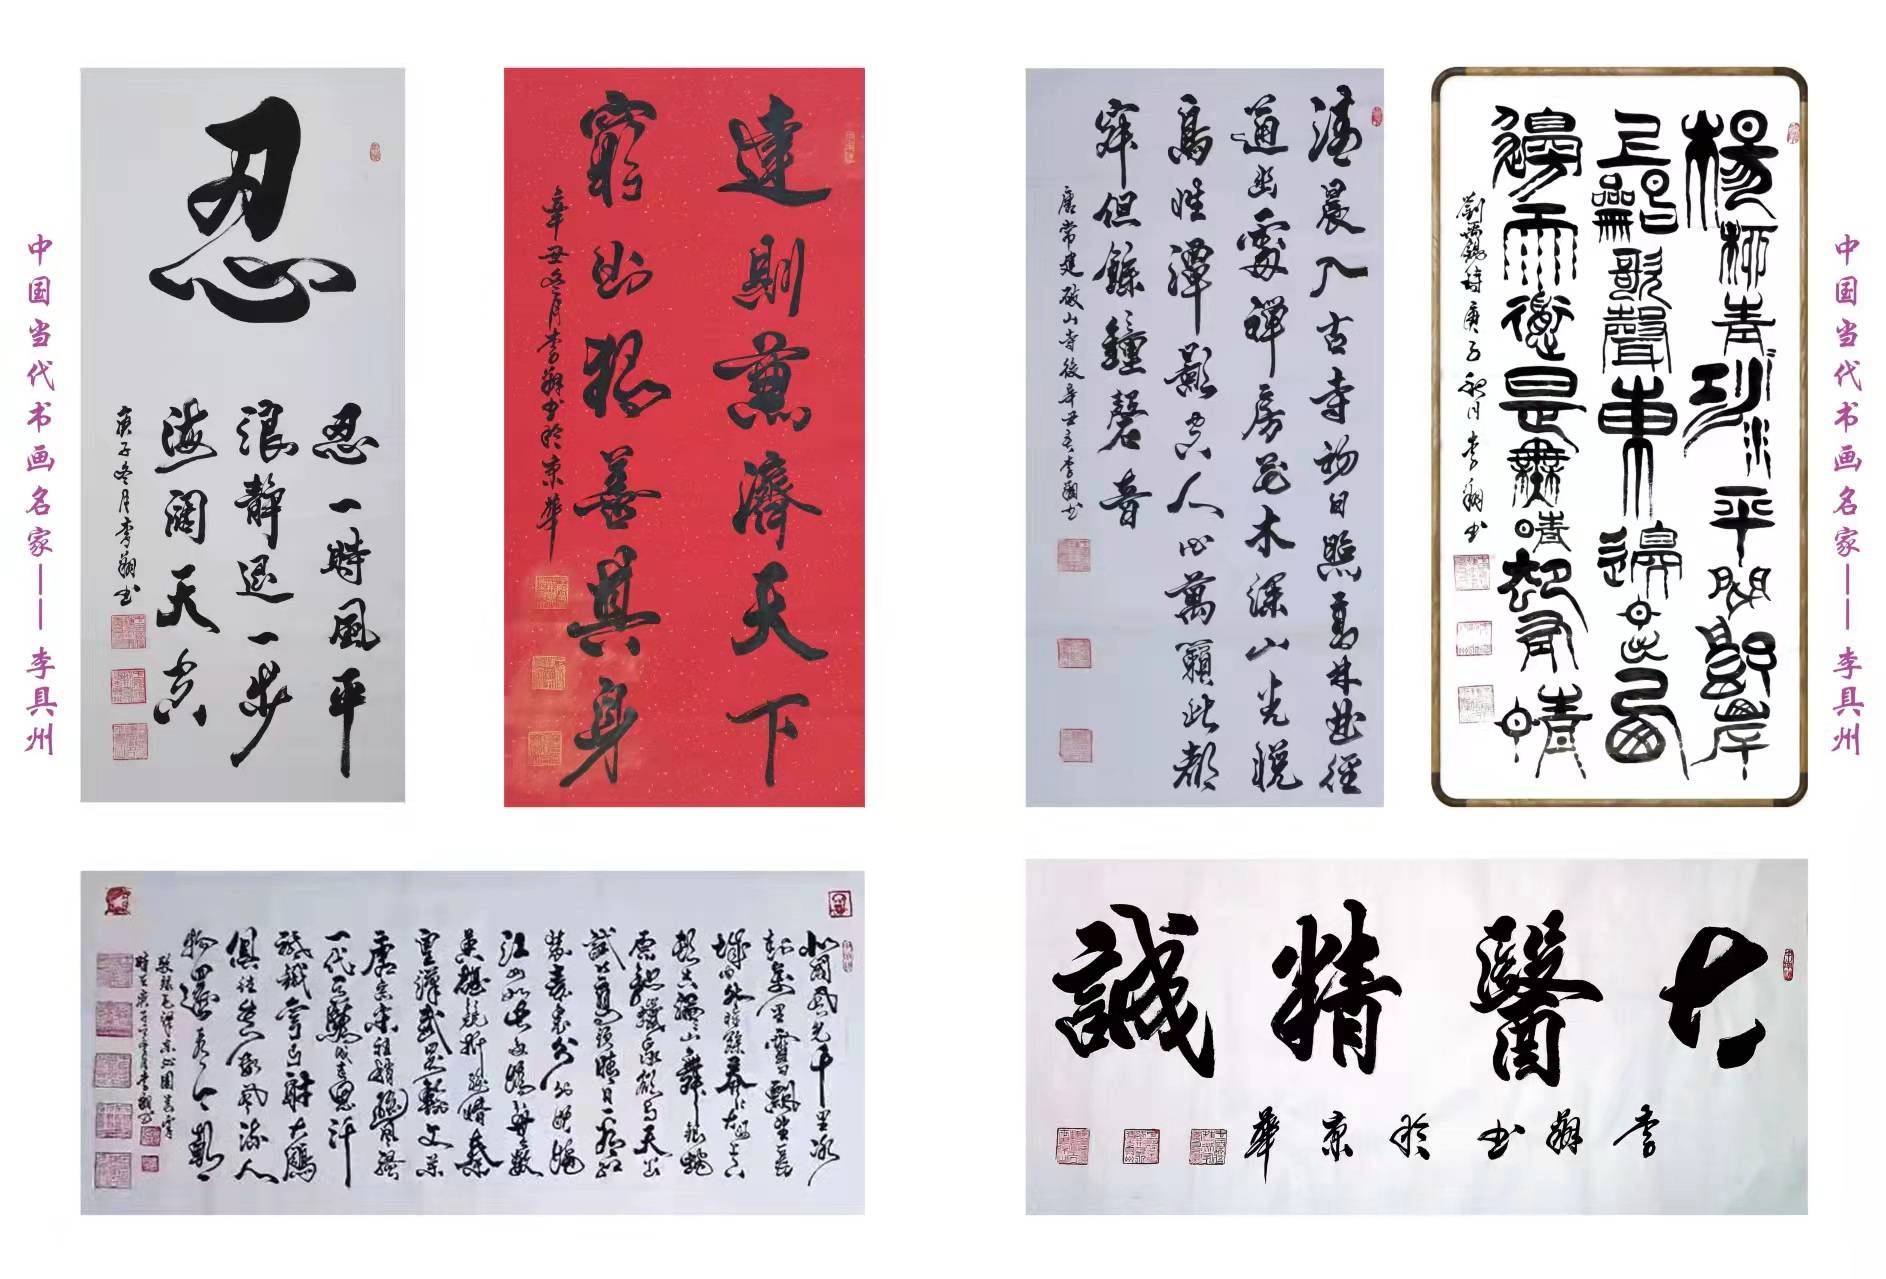 中国当代书画名家——李具州
忍
忍一時風平
浪靜退一步
海闊天空
庚子冬月李翔书
達則兼濟天下
窮则独善其身
辛丑冬月李翔书於京華
清晨入古寺初日照高林曲徑
通幽處禪房花木深山光悅
鳥性潭影空人心萬籟此都
寂但餘鐘磬音
唐常建破山寺後辛丑冬李翔书
楊柳青青江水平聞郎岸
上唱歌聲東邊日出西
邊雨道是無晴却有晴
劉禹錫詩庚子秋月李翔书
中国当代书画名家——李具州
北國風光千里冰
封萬里雪飄望長
城內外惟餘莽莽大河上下
頓失滔滔山舞銀蛇
原馳蠟象欲與天公
試比高須晴日看紅
裝素裹分外妖嬈
江山如此多嬌引無數
英雄競折腰惜秦
皇漢武略輸文采
唐宗宋祖稍遜風騷
一代天驕成吉思汗
祇識彎弓射大鵰
俱往矣數風流人
物還看今朝
敬錄毛澤東沁園春雪
時在庚子月李翔书
大醫精誠
李翔书於京華